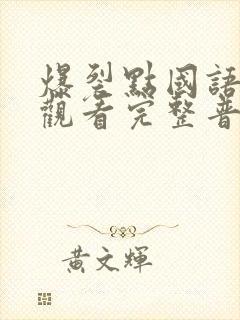 爆裂點國語
觀看完整普
黃文輝